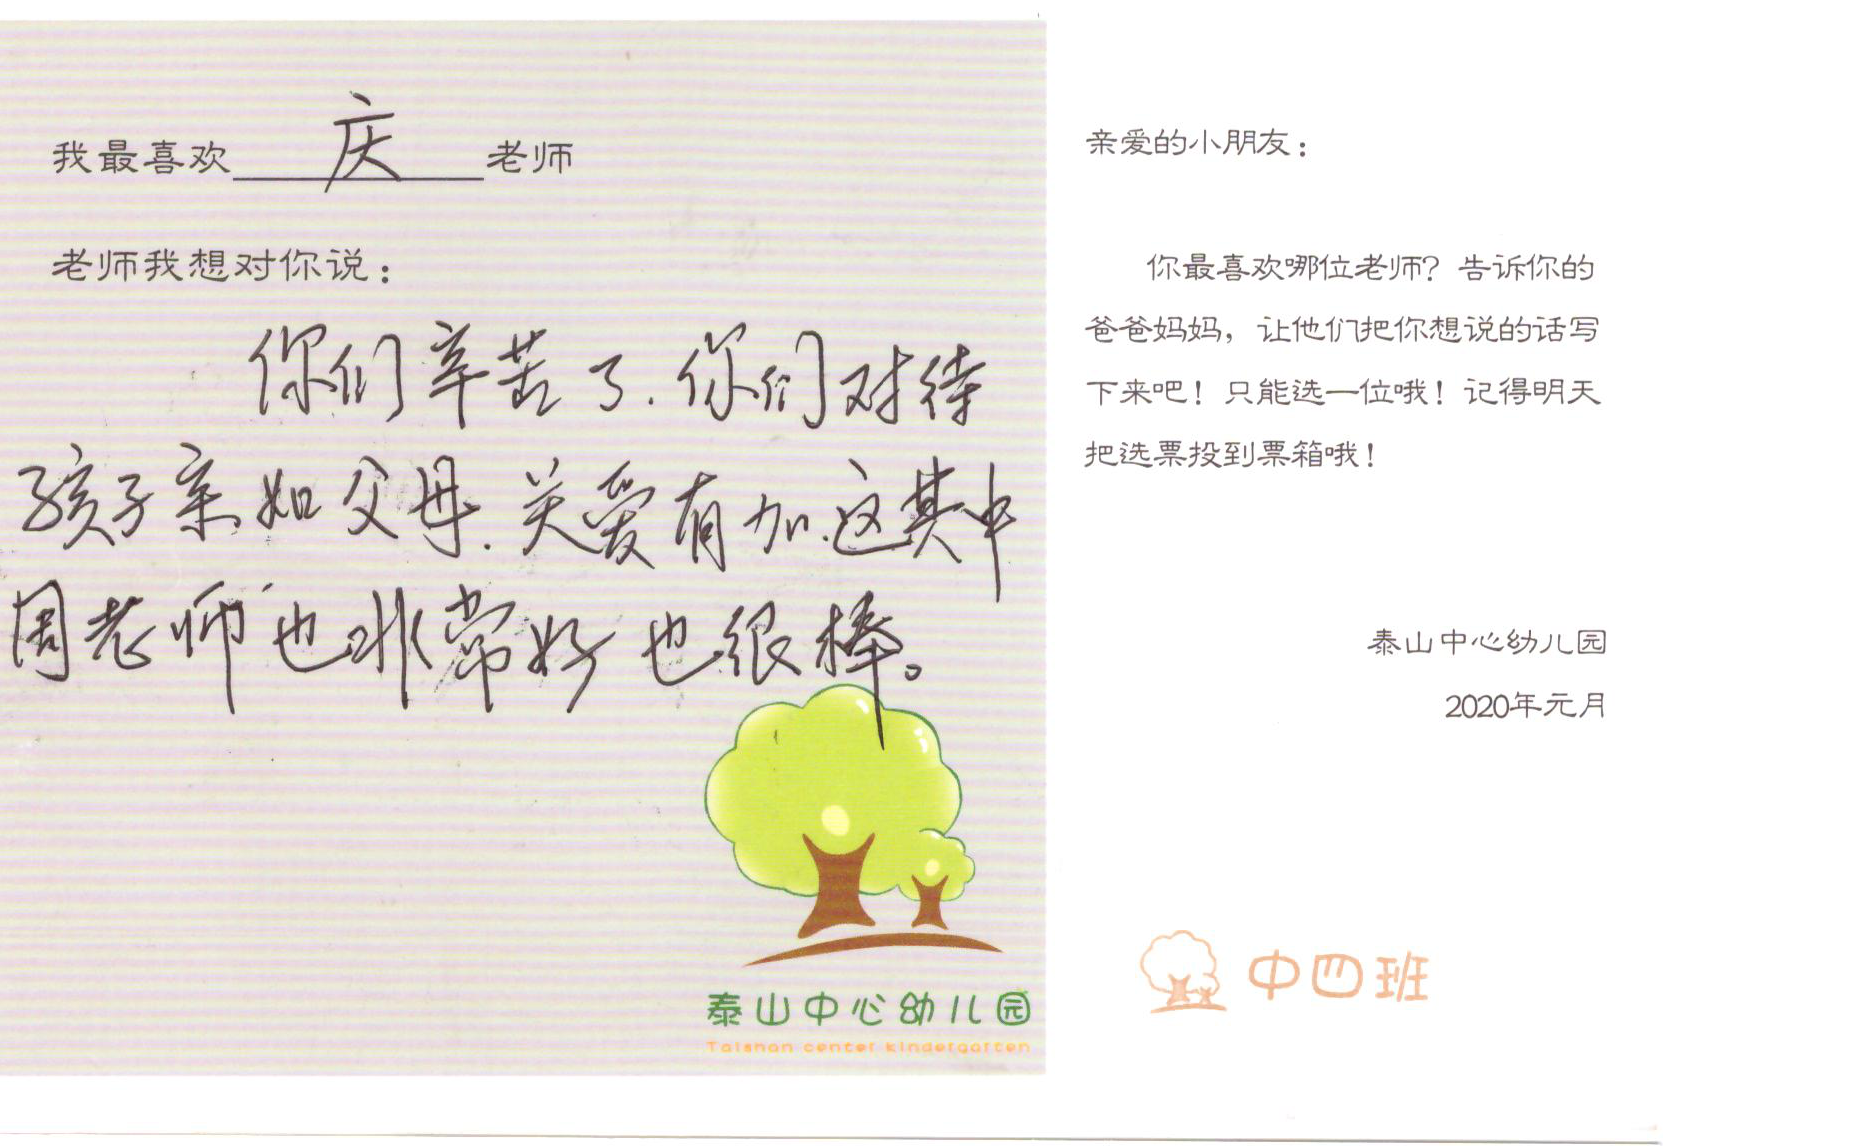 我最喜欢 庆 老师
老师我想对你说：
你们辛苦了.你们对待
孩子亲如父母.关爱有加.这其中
周老师也非常好也很棒。
泰山中心幼儿园
Taishan center kindergarten
亲爱的小朋友：
你最喜欢哪位老师？告诉你的
爸爸妈妈，让他们把你想说的话写
下来吧！只能选一位哦！记得明天
把选票投到票箱哦！
泰山中心幼儿园
2020年元月
中四班